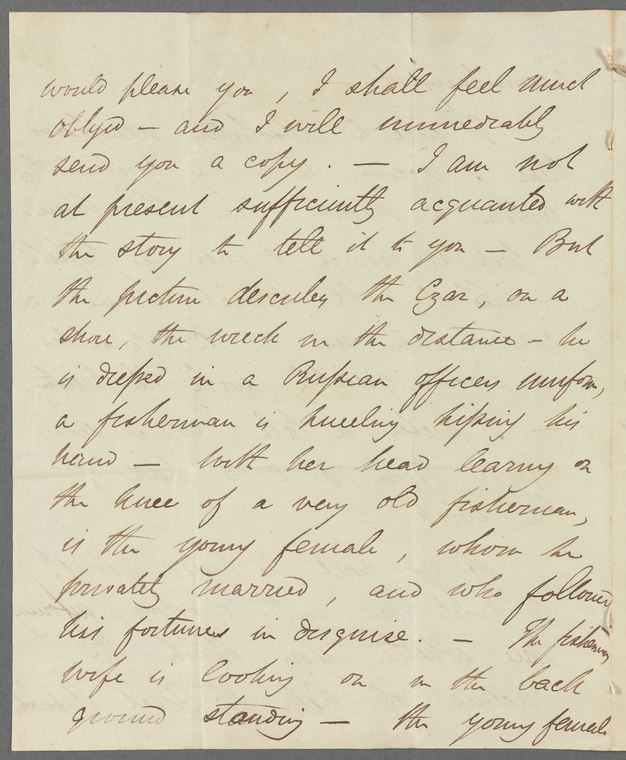 would please you, I shall feel much
oblyed – and I will immediately
send you a copy. — I am not
at present sufficiently acquanted with
the story to tell it to you — But
the picture describes the Czar, on a
shore, the wreck in the distance – he
is dressed in a Russian officers uniform,
a fisherman is kneeling kissing his
hand — with her head leaning on
the knee of a very old fisherman,
is the young female, whom he
privately married, and who followed
his fortunes in disguise. — The fisherman
wife is looking on in the back
ground standing — the young female